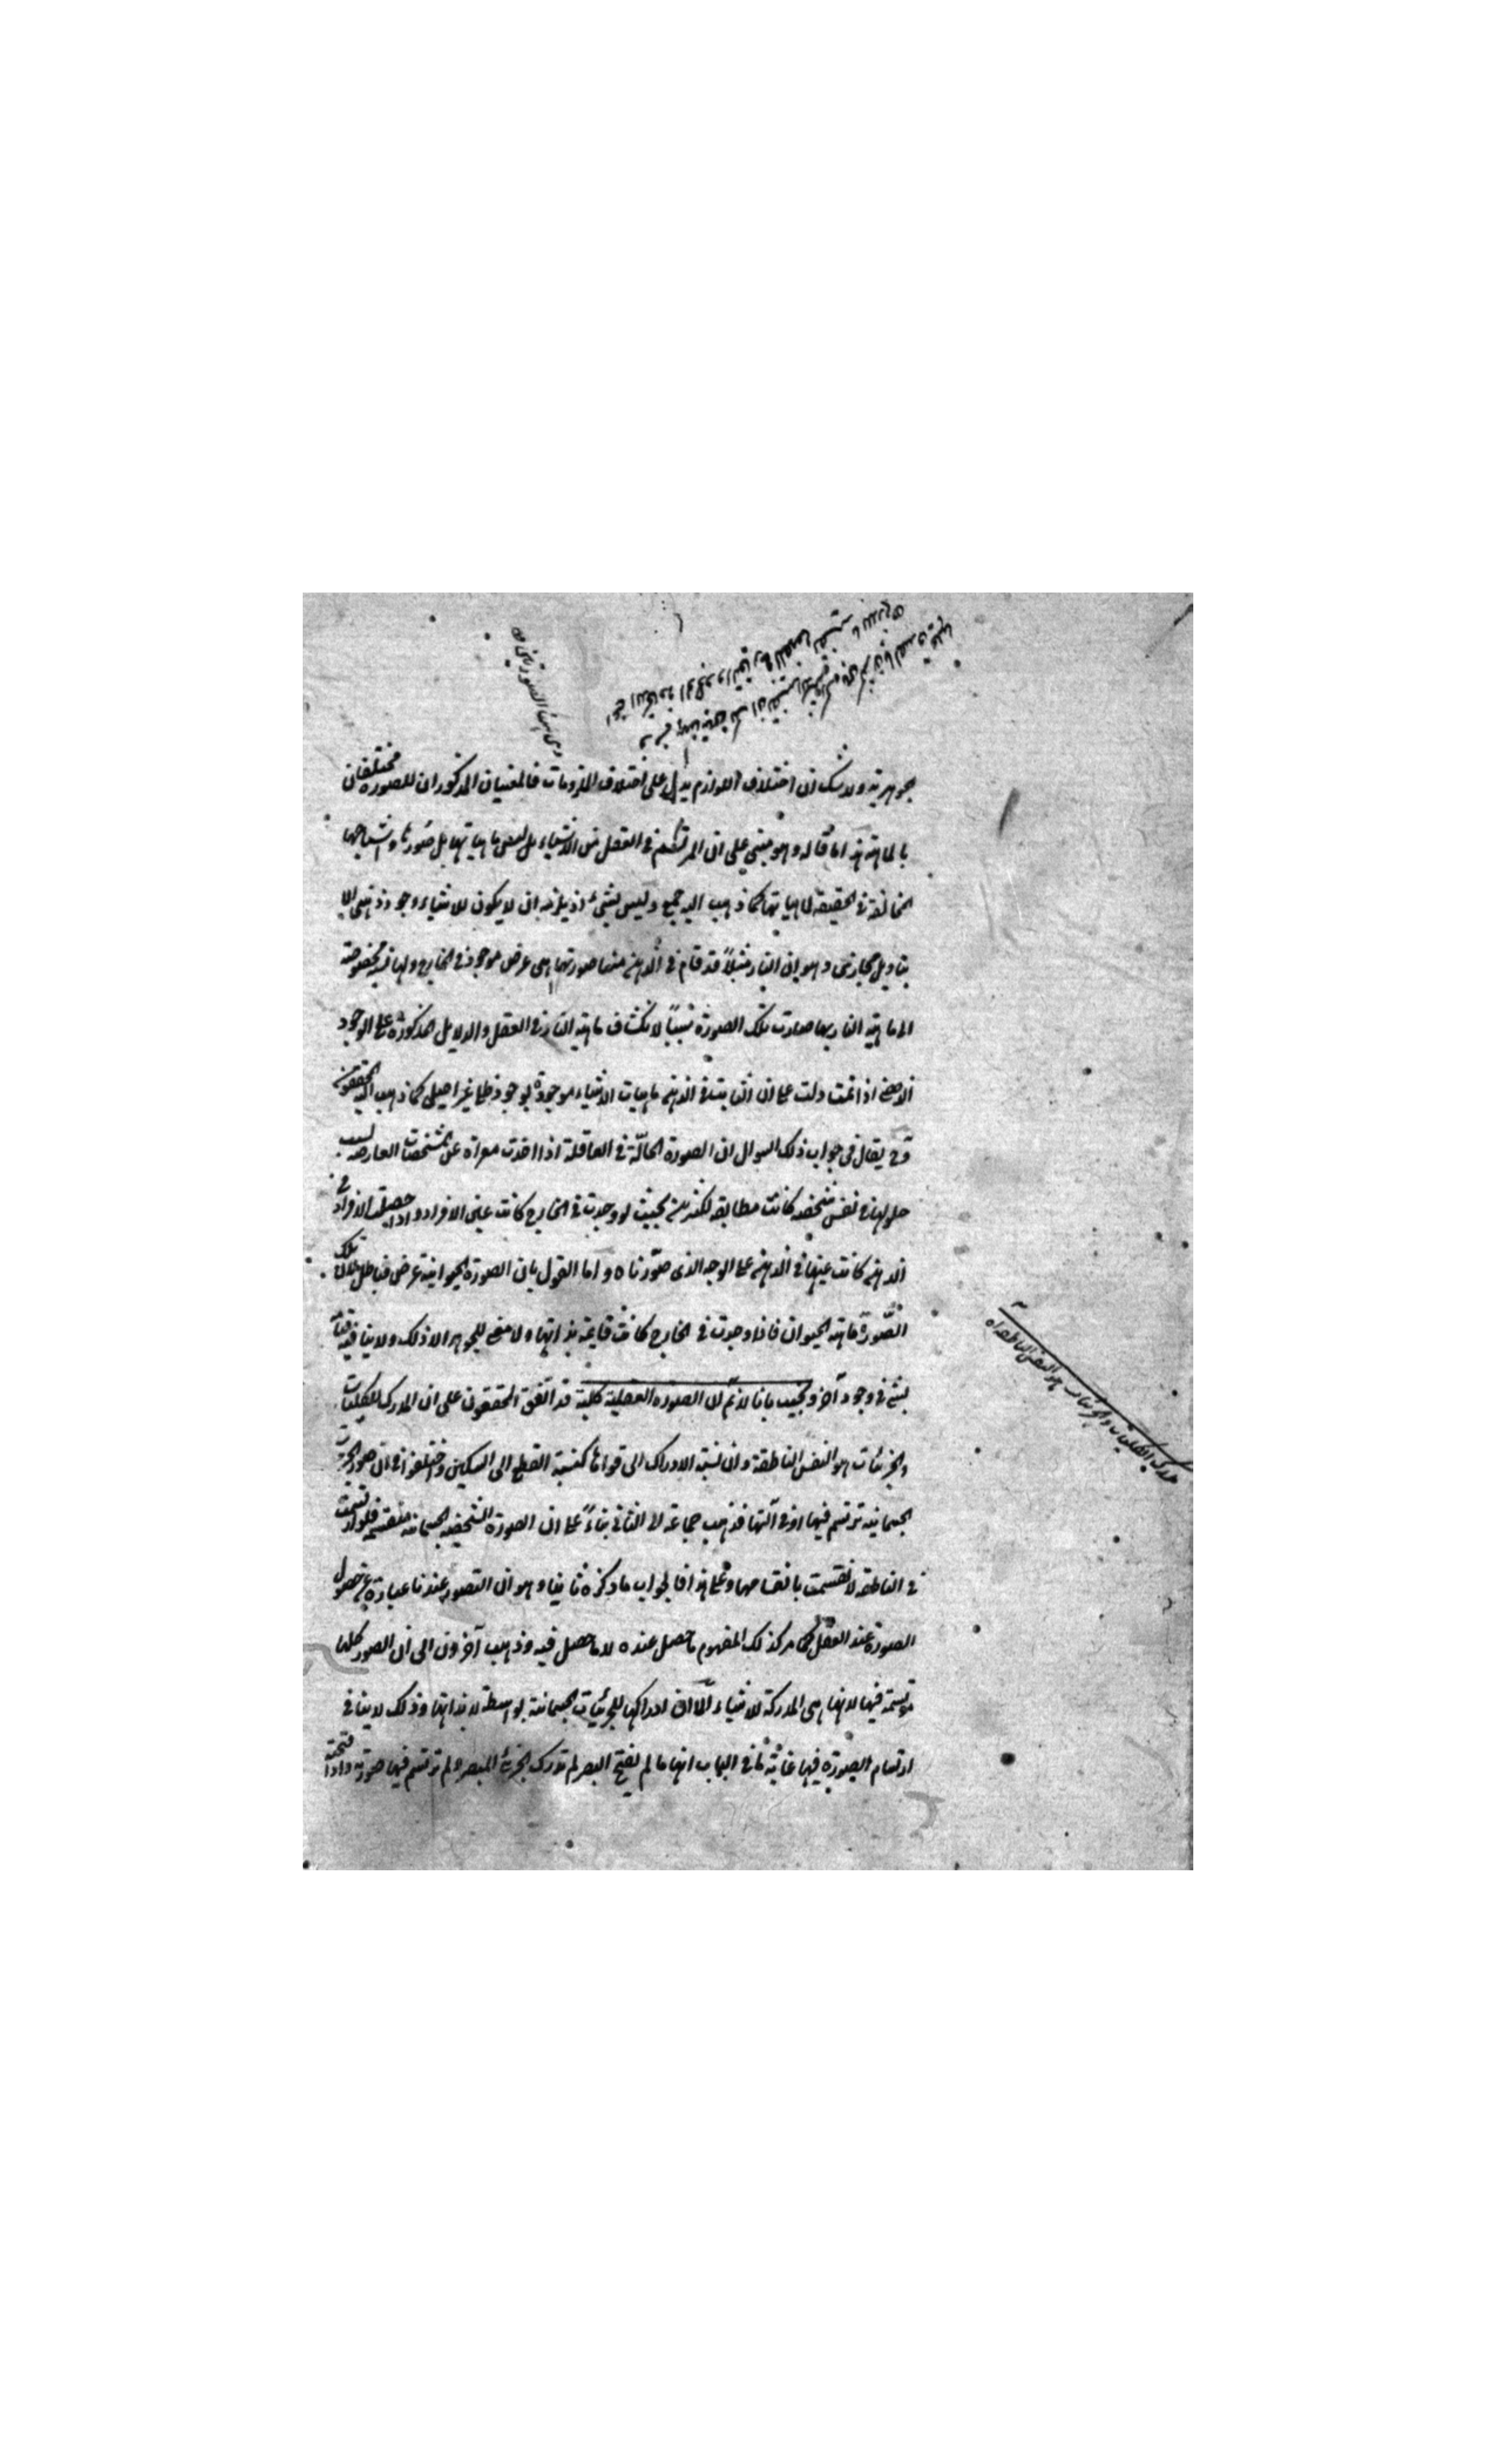 بجوهريته ولا شك ان اختلاف اللوازم يدل على اختلاف الملزومات فالمعنيان المذكوران للصوره مختلفان
بالماهية هذا ما قاله وهو مبنى على ان المرتسم في العقل من الاشياء ليس ماهياتها بل صورها واشباحها
المخالفة في الحقيقة لماهياتها كما ذهب اليه جمع وليس بشيء اذ يلزمه ان لا يكون للاشياء وجود ذهني الا
بتاويل مجازى وهو ان النار مثلاً قد قام في الذهن منها صورة هي عرض موجود في الخارج ولها نسبة مخصوصة
الى ماهية النار بها صارت تلك الصورة سبباً لانكشاف ماهية النار في العقل والدلايل المذكورة على الوجود
الذهني اذا تمت دلت على ان الثابت في الذهن ماهيات الاشياء موجودة بوجود ظلي غير اصيلى كما ذهب اليه المحققون
وح يقال في جواب ذلك السوال ان الصورة الحالّة في العاقلة اذا اخذت معراة عن المشخصات العارضه بسبب
حلولها في نفس شخصه كانت مطابقه لكثيرين بحيث لو وجدت في الخارج كانت عين الافراد واذا حصلت الافراد في
الذهن كانت عينها في الذهن على الوجه الذى صوّرناه واما القول بان الصورة الحيوانية عرض فباطل لان تلك
الصّورة ماهية الحيوان فاذا وجدت في الخارج كانت قايمة بذاتها ولا معنى للجوهر الا ذلك ولا ينافيه قيامه
بشئ في وجود آخر ونجيب بانا لا نم ان الصوره العقلية كلية قد اتفق المحققون على ان المدرك للكليات
والجزئيات هو النفس الناطقة وان نسبة الادراك الى قواها كنسبة القطع الى السكين واختلفوا في ان صور الجزئيات
الجسمانيه ترتسم فيها او في آلتها فذهب جماعة الى الثاني بناءً على ان الصورة الشخصيه الجسمانيه منقسمه فلو ارتسمت
في الناطقه لانقسمت بانقسامها وعلى هذا فالجواب ما ذكره ثانيا وهو ان التصور عندنا عبارة عن حصول
الصورة عند العقل كما مر كذلك المفهوم ما حصل عنده لا ما حصل فيه وذهب آخرون الى ان الصور كلها
مرتسمة فيها لانها هي المدركة للاشياء الا ان ادراكها للجزئيات الجسمانية بواسطة لا بذاتها وذلك لا ينافى
ارتسام الصورة فيها غاية ما في الباب انها ما لم نفتح البصر لم تدرك الجزئي المبصر ولم ترتسم فيها صورته واذا فتحته
مدرك الكليات والجزئيات هو النفس الناطقة